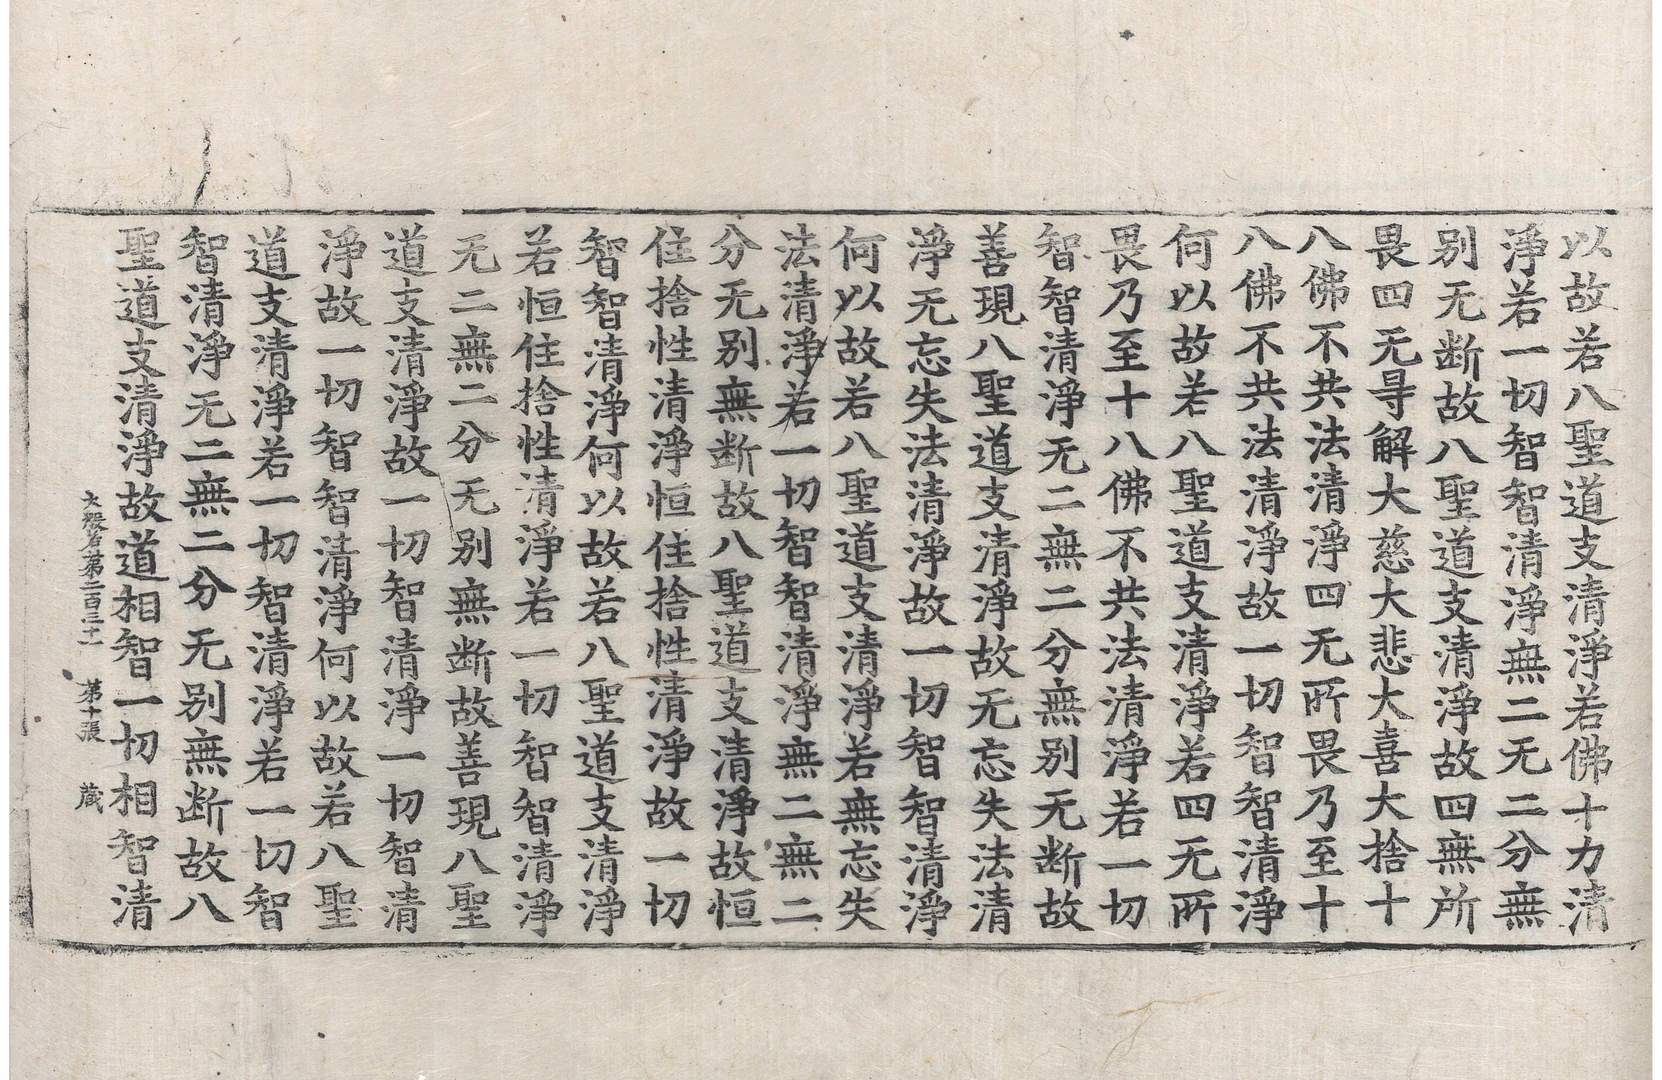 以故若八聖道支清淨若佛十力清
淨若一切智智清淨無二无二分無
别无断故八聖道支清淨故四無所
畏四无㝵解大慈大悲大喜大捨十
八佛不共法清淨四无所畏乃至十
八佛不共法清淨故一切智智清淨
何以故若八聖道支清淨若四无所
畏乃至十八佛不共法清淨若一切
智智清淨无二無二分無别无断故
善現八聖道支清淨故无忘失法清
淨无忘失法清淨故一切智智清淨
何以故若八聖道支清淨若無忘失
法清淨若一切智智清淨無二無二
分无别無断故八聖道支清淨故恒
住捨性清淨恒住捨性清淨故一切
智智清淨何以故若八聖道支清淨
若恒住捨性清淨若一切智智清淨
无二無二分无别無断故善現八聖
道支清淨故一切智清淨一切智清
淨故一切智智清淨何以故若八聖
道支清淨若一切智清淨若一切智
智清淨无二無二分无别無断故八
聖道支清淨故道相智一切相智清
大般若第二百三十一 第十張 蔵